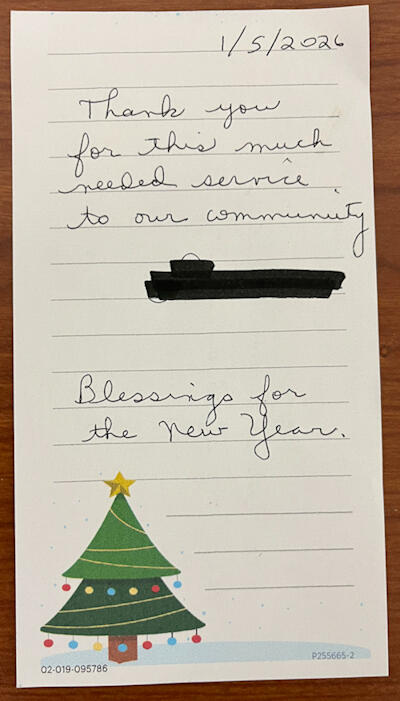 1/5/2026
Thank you
for this much
needed service
to our community
Blessings for
the New Year.
P255665-2
02-019-095786